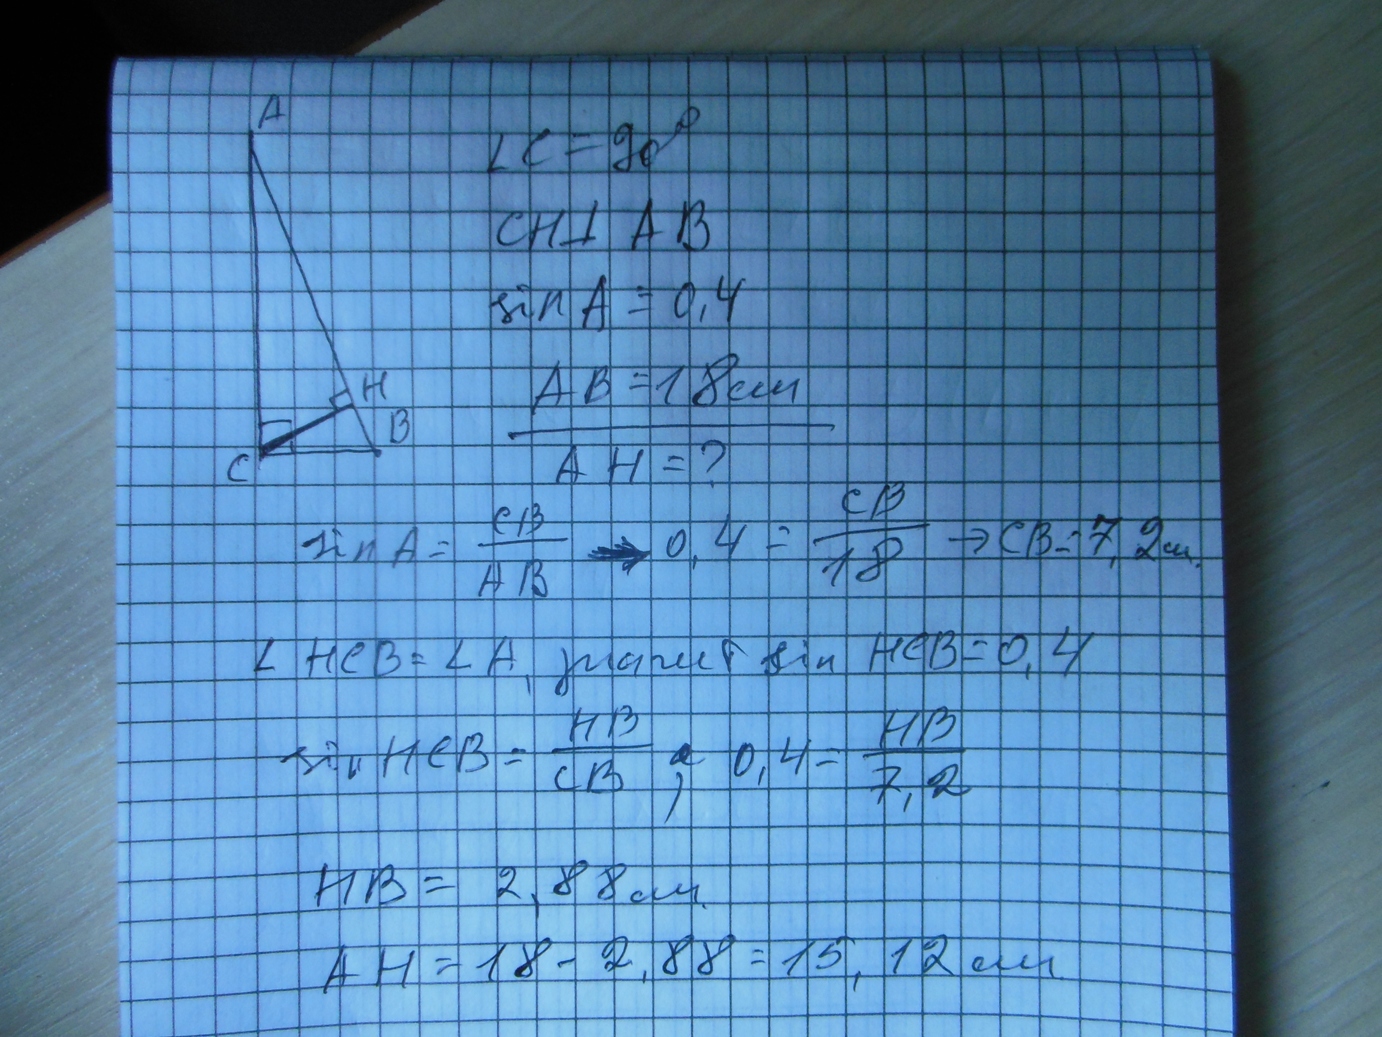 A
∠C = 90°
CH ⊥ AB
sin A = 0,4
H
AB = 18 см
B
C
AH = ?
sin A = CB/AB → 0,4 = CB/18 → CB = 7,2 см.
∠HCB = ∠A, значит sin HCB = 0,4
sin HCB = HB/CB ; 0,4 = HB/7,2
HB = 2,88 см.
AH = 18 - 2,88 = 15,12 см